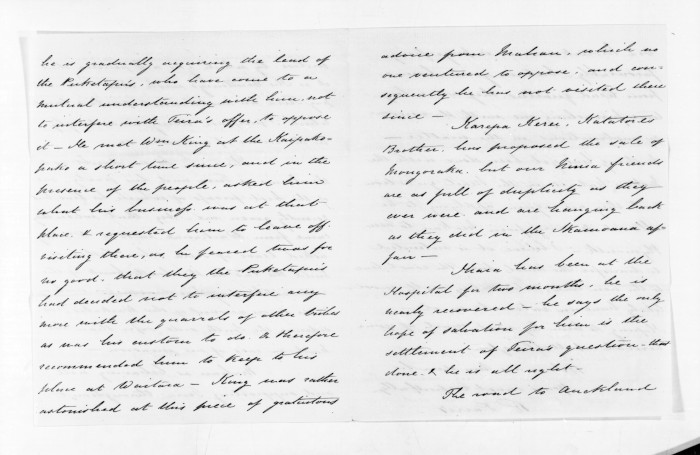 he is gradually acquiring the lead of
the Puketapuis, who have come to a
mutual understanding with him, not
to interfere with Teira's offer, to oppose
it — He met Wm King at the Kaipako-
pako a short time since, and in the
presence of the people, asked him
what his business was at that
place, & requested him to leave off
visiting there, as he feared twas for
no good, that they the Puketapuis
had decided not to interfere any
more with the quarrels of other tribes
as was his custom to do, & therefore
recommended him to keep to his
place at Waitara — King was rather
astonished at this piece of gratuitous
advice from Mahau, which no
one ventured to oppose, and con-
sequently he has not visited there
since —
Karepa Kerei, Katatore's
Brother, has proposed the sale of
Mangoraka, but our Ninia friends
are as full of duplicity as they
ever were, and are hanging back
as they did in the Ikamoana af-
fair —
Ihaia has been at the
Hospital for two months, he is
nearly recovered — he says the only
hope of salvation for him is the
settlement of Teira's question — that
done, & he is all right —
The road to Auckland